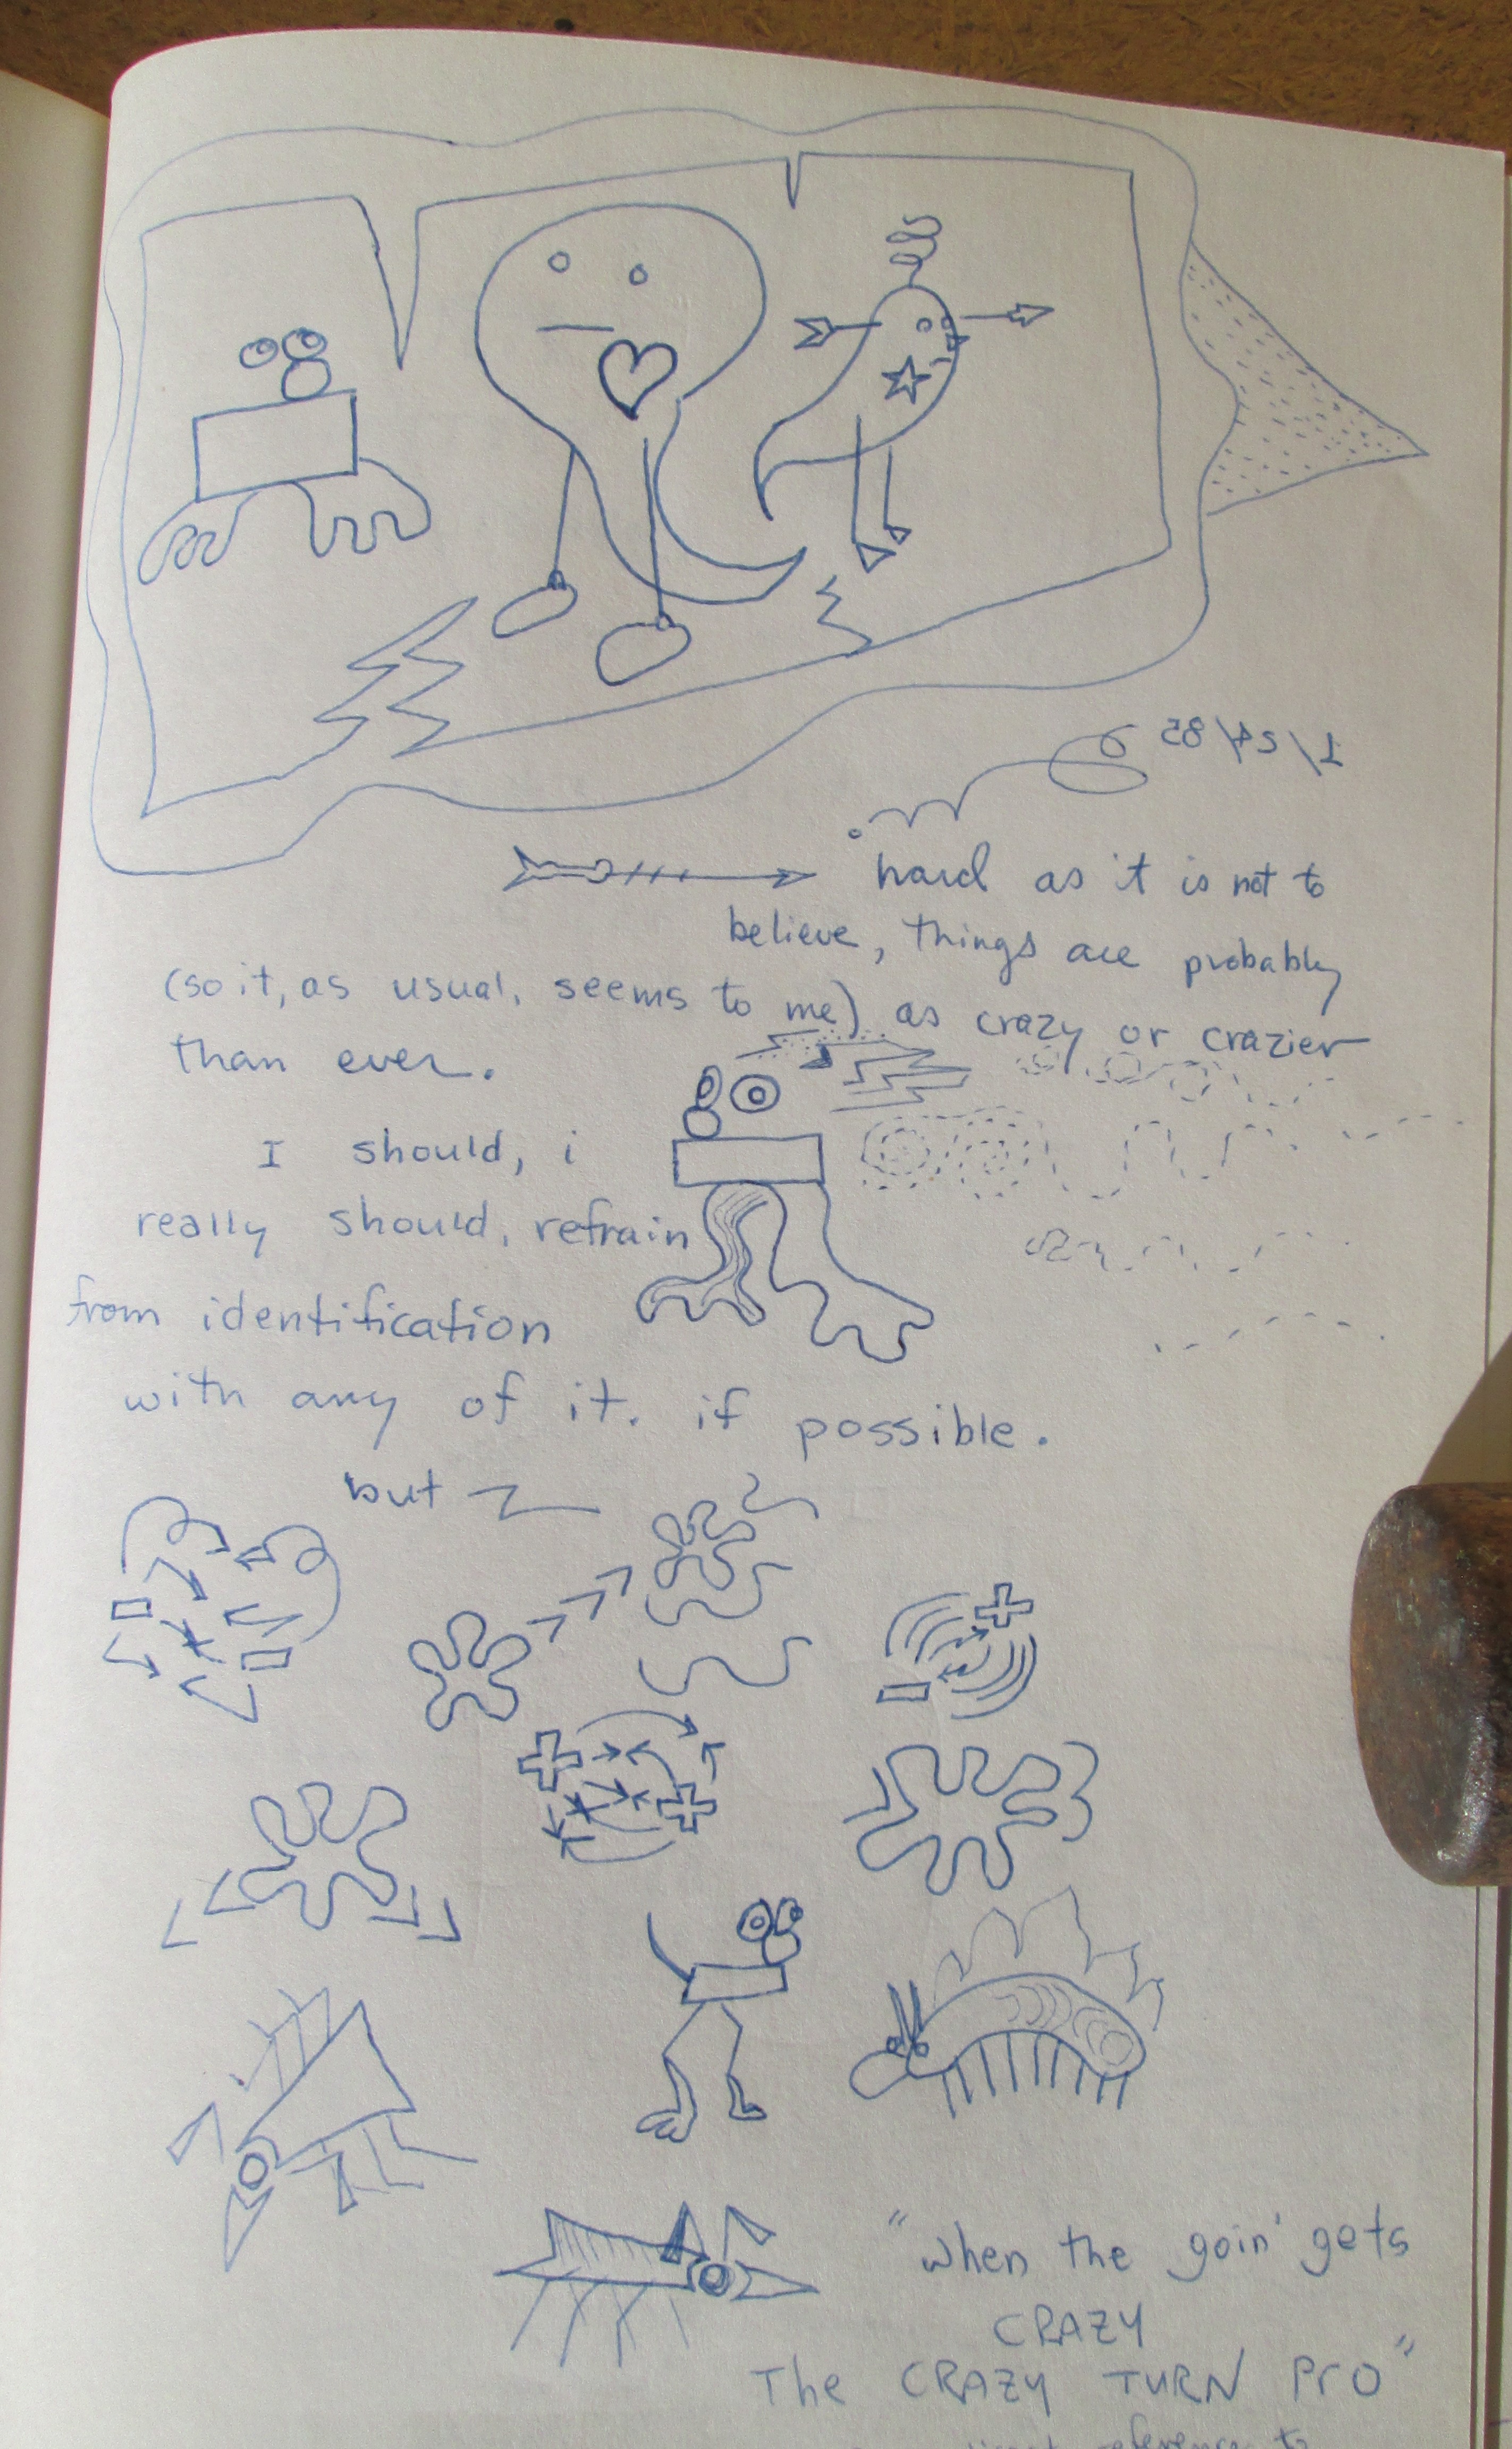 1/24/85
hard as it is not to
believe, things are probably
(so it, as usual, seems to me) as crazy or crazier
than ever.
I should, i
really should, refrain
from identification
with any of it. if possible.
but
"when the goin' gets
CRAZY
The CRAZY TURN Pro"
reference to